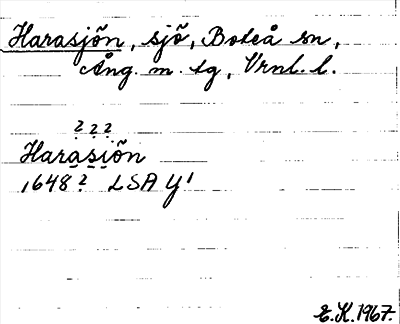 Harasjön, sjö, Boteå sn,
Ång. m. tg, Vrnl. l.
? ? ?
Harasiön
1648? LSA Y¹
E.K. 1967.